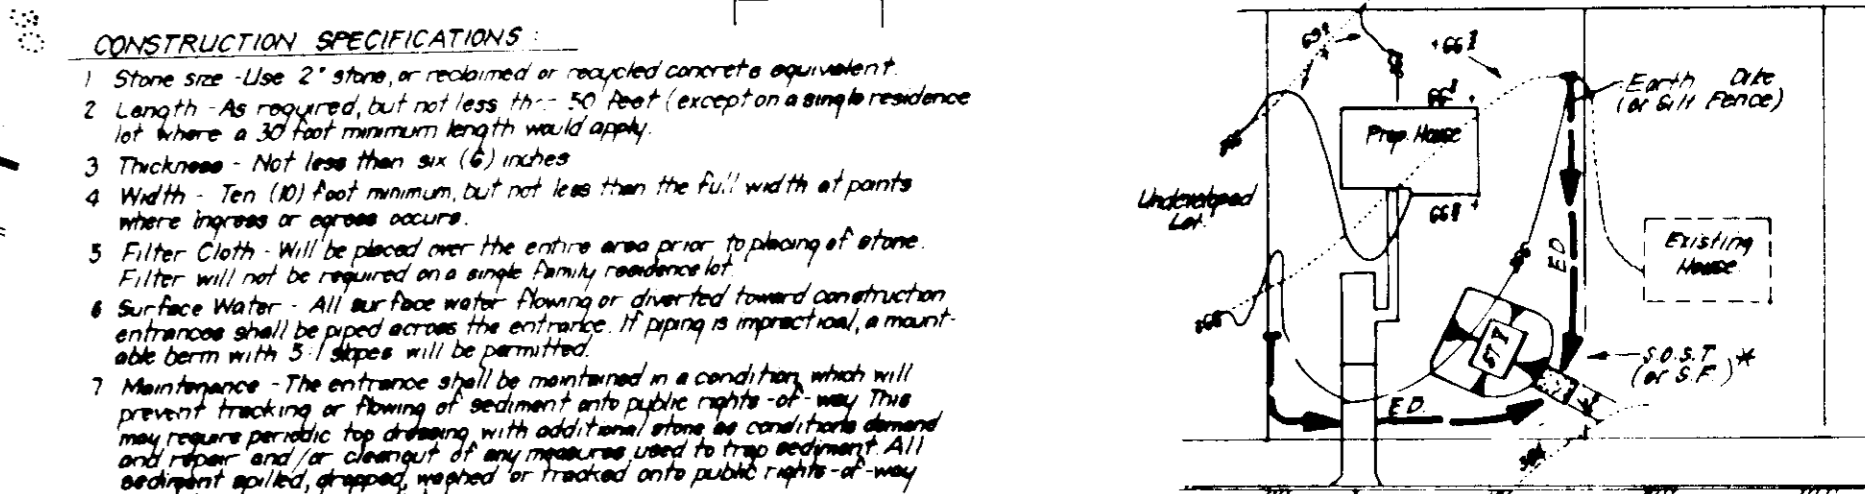 CONSTRUCTION SPECIFICATIONS :
1 Stone size - Use 2" stone, or reclaimed or recycled concrete equivalent.
2 Length - As required, but not less than 50 feet (except on a single residence
lot where a 30 foot minimum length would apply.
3 Thickness - Not less than six (6) inches
4 Width - Ten (10) foot minimum, but not less than the full width at points
where ingress or egress occurs.
5 Filter Cloth - Will be placed over the entire area prior to placing of stone.
Filter will not be required on a single family residence lot
6 Surface Water - All surface water flowing or diverted toward construction
entrances shall be piped across the entrance. If piping is impractical, a mount-
able berm with 5:1 slopes will be permitted.
7 Maintenance - The entrance shall be maintained in a condition which will
prevent tracking or flowing of sediment onto public rights-of-way This
may require periodic top dressing with additional stone as conditions demand
and repair and/or cleanout of any measures used to trap sediment. All
sediment spilled, dropped, washed or tracked onto public rights-of-way
Earth Dike
(or Silt Fence)
Prop. House
Undeveloped
Lot
Existing
House
E.D.
S.O.S.T. *
(or S.F.)
E.D.